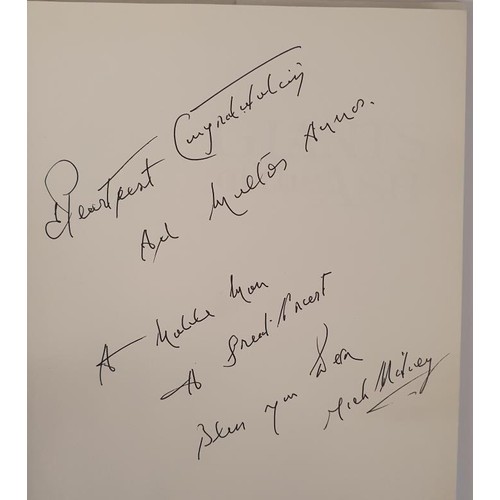 Heartfelt Congratulations
Ad Multos Annos.
A Noble Man
A Great Priest
Bless you Des
Mick